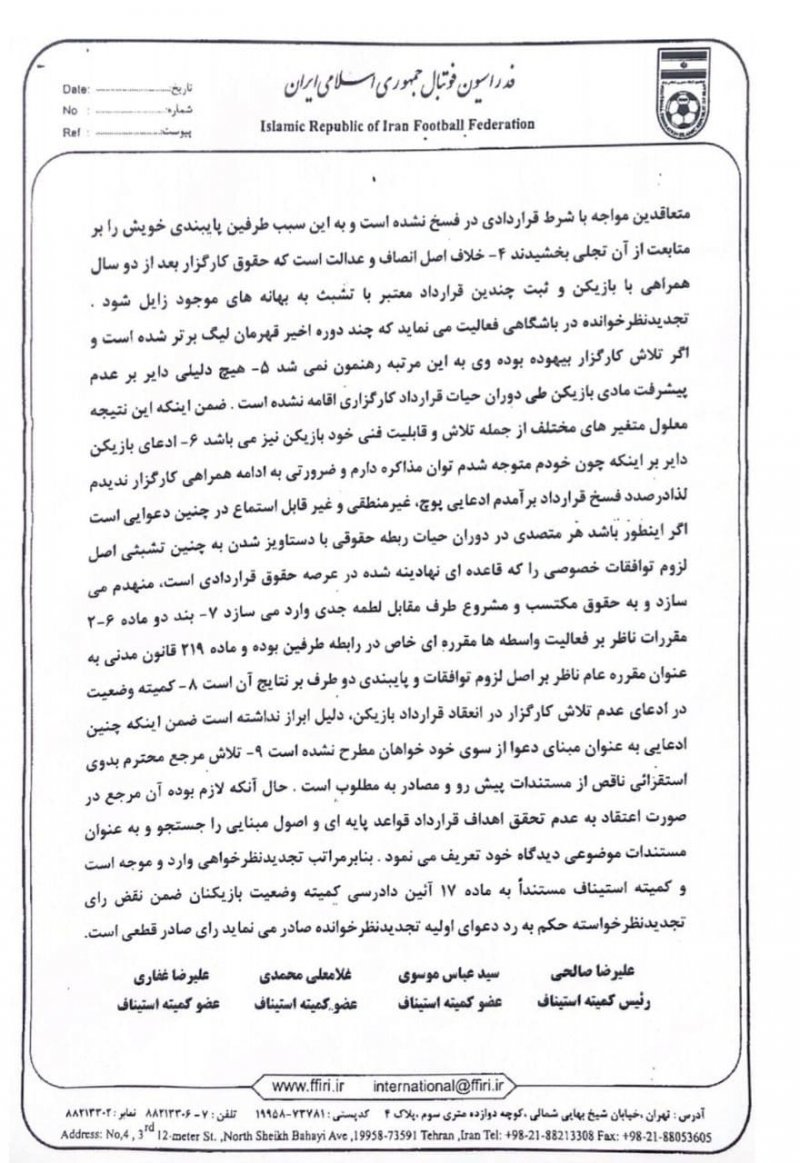 فدراسیون فوتبال جمهوری اسلامی ایران
Islamic Republic of Iran Football Federation
Date: تاریخ:
No : شماره:
Ref : پیوست:
متعاقدین مواجه با شرط قراردادی در فسخ نشده است و به این سبب طرفین پایبندی خویش را بر
متابعت از آن تجلی بخشیدند ۴- خلاف اصل انصاف و عدالت است که حقوق کارگزار بعد از دو سال
همراهی با بازیکن و ثبت چندین قرارداد معتبر با تشبث به بهانه های موجود زایل شود .
تجدیدنظرخوانده در باشگاهی فعالیت می نماید که چند دوره اخیر قهرمان لیگ برتر شده است و
اگر تلاش کارگزار بیهوده بوده وی به این مرتبه رهنمون نمی شد ۵- هیچ دلیلی دایر بر عدم
پیشرفت مادی بازیکن طی دوران حیات قرارداد کارگزاری اقامه نشده است . ضمن اینکه این نتیجه
معلول متغیر های مختلف از جمله تلاش و قابلیت فنی خود بازیکن نیز می باشد ۶- ادعای بازیکن
دایر بر اینکه چون خودم متوجه شدم توان مذاکره دارم و ضرورتی به ادامه همراهی کارگزار ندیدم
لذادرصدد فسخ قرارداد برآمدم ادعایی پوچ، غیرمنطقی و غیر قابل استماع در چنین دعوایی است
اگر اینطور باشد هر متصدی در دوران حیات ربطه حقوقی با دستاویز شدن به چنین تشبثی اصل
لزوم توافقات خصوصی را که قاعده ای نهادینه شده در عرصه حقوق قراردادی است، منهدم می
سازد و به حقوق مکتسب و مشروع طرف مقابل لطمه جدی وارد می سازد ۷- بند دو ماده ۶-۲
مقررات ناظر بر فعالیت واسطه ها مقرره ای خاص در رابطه طرفین بوده و ماده ۲۱۹ قانون مدنی به
عنوان مقرره عام ناظر بر اصل لزوم توافقات و پایبندی دو طرف بر نتایج آن است ۸- کمیته وضعیت
در ادعای عدم تلاش کارگزار در انعقاد قرارداد بازیکن، دلیل ابراز نداشته است ضمن اینکه چنین
ادعایی به عنوان مبنای دعوا از سوی خود خواهان مطرح نشده است ۹- تلاش مرجع محترم بدوی
استقرائی ناقص از مستندات پیش رو و مصادر به مطلوب است . حال آنکه لازم بوده آن مرجع در
صورت اعتقاد به عدم تحقق اهداف قرارداد قواعد پایه ای و اصول مبنایی را جستجو و به عنوان
مستندات موضوعی دیدگاه خود تعریف می نمود . بنابرمراتب تجدیدنظرخواهی وارد و موجه است
و کمیته استیناف مستنداً به ماده ۱۷ آئین دادرسی کمیته وضعیت بازیکنان ضمن نقض رای
تجدیدنظرخواسته حکم به رد دعوای اولیه تجدیدنظرخوانده صادر می نماید رای صادر قطعی است.
علیرضا صالحی سید عباس موسوی غلامعلی محمدی علیرضا غفاری
رئیس کمیته استیناف عضو کمیته استیناف عضو کمیته استیناف عضو کمیته استیناف
www.ffiri.ir international@ffiri.ir
آدرس : تهران ،خیابان شیخ بهایی شمالی ،کوچه دوازده متری سوم ،پلاک ۴ کدپستی : ۷۳۷۸۱-۱۹۹۵۸ تلفن : ۷-۸۸۲۱۳۳۰۶ نمابر : ۸۸۲۱۳۳۰۲
Address: No,4 , 3rd 12-meter St. ,North Sheikh Bahayi Ave ,19958-73591 Tehran ,Iran Tel: +98-21-88213308 Fax: +98-21-88053605